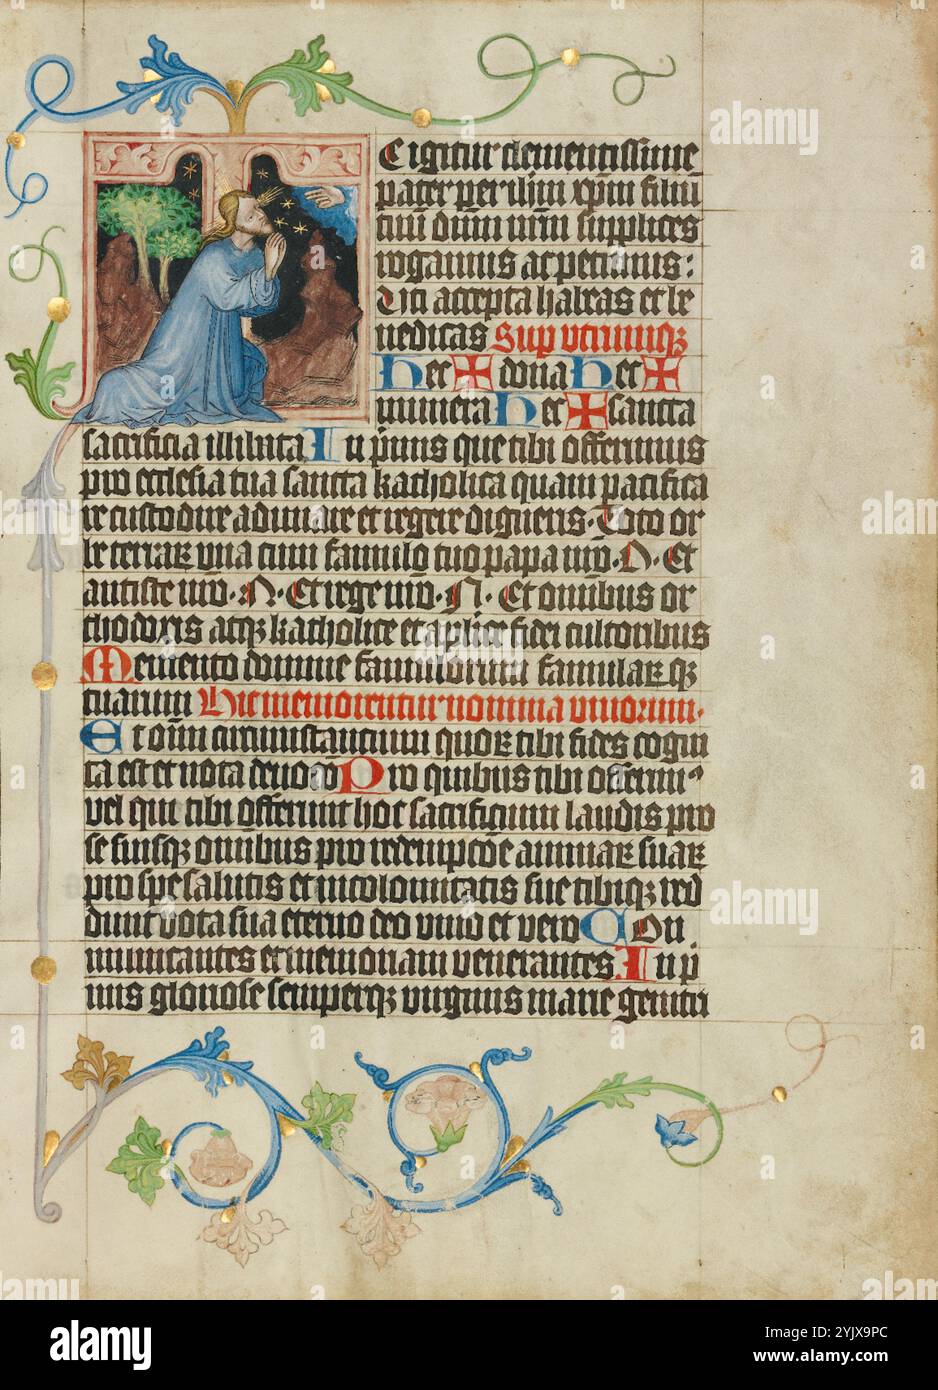 E igitur clementissime
pater per ihm xpm filiu
tuu dnm nrm supplices
rogamus ac petimus:
Uti accepta habeas et be
nedicas Sup utrumq
Hec ✠ dona Hec ✠
munera Hec ✠ sancta
sacrificia illibata In pmis que tibi offerimus
pro ecclesia tua sancta katholica quam pacifica
re custodire adunare et regere digneris. Toto or
be terrarꝝ una cum famulo tuo papa nro. N. Et
antiste nro. N. Et rege nro. N. Et omibus or
thodoxis atqꝫ katholice et aplice fidei cultoribus
Memento domine famulorum famularꝝ qꝫ
tuarum Hic memorentur nomina vivorum.
Et omi circumstantium quorꝝ tibi fides cogni
ta est et nota devoco Pro quibus tibi offerim9
vel qui tibi offerunt hoc sacrificium laudis pro
se suisqꝫ omibus pro redempcoe animarꝝ suarꝝ
pro spe salutis et incolomitatis sue tibiqꝫ red
dunt vota sua eterno deo vivo et vero Com
municantes et memoriam venerantes. In p
mis gloriose semperqꝫ virginis marie genitri
alamy
Image ID: 2YJX9PC
www.alamy.com